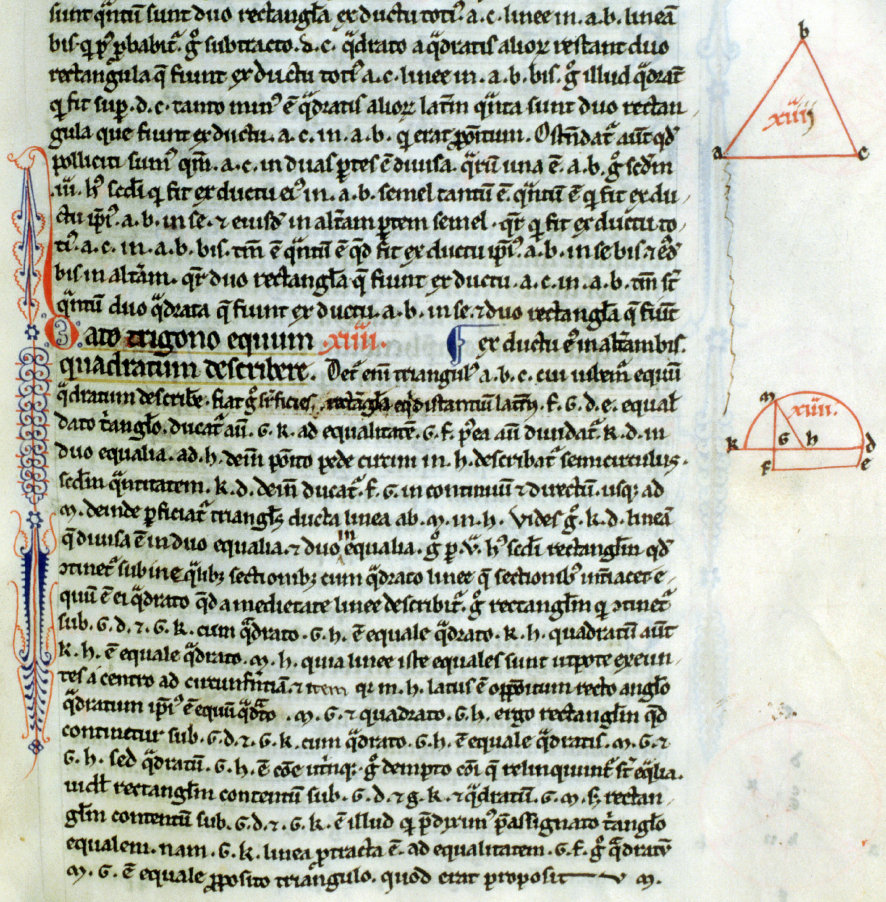 sunt qͣntū sunt duo rectangl̄a ex ductu toti᷒ .a.c. linee in .a.b. lineā
bis. q̇ p᷒ ꝓbabit᷑. g̊ subtracto .d.c. qͣdrato a qͣdratis alioꝝ restant duo
rectangula q̄ fiunt ex ductu toti᷒ .a.c. linee in .a.b. bis. g̊ illud qͣdrat᷒
q̇ fit sup̱ .d.c. tanto min᷒ ē qͣdratis alioꝝ lat̄m qͣnta sunt duo rectan
gula que fiunt ex ductu .a.c. in .a.b. q̇ erat ꝓpoītum. Ostn̄dat᷑ aūt qd̄
polliciti sum᷒ qm̄ .a.c. in duas ꝑtes ē diuisa. qͣrū una ē .a.b. g̊ sed̄m
.iii. h᷒ scd̄i q̇ fit ex ductu ei᷒ in .a.b. semel tantū ē. qͣntū ē q̇ fit ex du
ctu ip̄i᷒ .a.b. in se. ⁊ eiusd̄ in alt̄am ꝑtem semel. qr̄ q̇ fit ex ductu to
ti᷒ .a.c. in .a.b. bis. tm̄ ē qͣntū ē qd̄ fit ex ductu ip̄i᷒ .a.b. in se bis ⁊ ei᷒d̄
bis in alt̄am. qr̄ duo rectangl̄a q̄ fiunt ex ductu .a.c. in .a.b. tm̄ st̄
qͣntū duo qͣdrata q̄ fiunt ex ductu .a.b. in se. ⁊ duo rectangl̄a q̄ fiūt
Dato trigono equum .xiiii. ¶ ex ductu ei᷒ in alt̄am bis.
quadratum describere. Det᷑ eni᷒ triangul᷒ .a.b.c. cui uolum᷒ equū
qͣdratum describe᷑. fiat g̊ sr̄ficies rectangl̄a eqͥdistantiū lat̄m .f.g.d.e. equal᷒
dato tͥanglo. ducat᷑ aū .G.K. ad equalitatē .G.f. p᷒ea aū diuidat᷑ .K.d. in
duo equalia. ad .h. dein̄ poīto pede circini in .h. describat᷑ semicirculus.
sed̄m qͣntitatem .K.d. dein̄ ducat᷑ .f.G. in continuū ⁊ directū. usq; ad
.m. deinde ꝑficiat᷑ triangl᷒ ducta linea ab .m. in .h. Vides g̊ .K.d. lineā
q̄ diuisa ē in duo equalia. ⁊ duo inequalia. g̊ p̱ .v. h᷒ scd̄i rectangl̄m qd̄
ↄtinet᷑ sub ineqͣlibꝫ sectionibꝫ cum qͣdrato linee q̄ sectionibꝫ int̄iacet e
quū ē ei qͣdrato qd̄ a medietate linee describit᷑. g̊ rectangl̄m q̇ ↄtinet᷑
sub .G.d. ⁊ .G.K. cum qͣdrato .G.h. ē equale qͣdrato .K.h. quadratū aūt
K.h. ē equale qͣdrato .m.h. quia linee iste equales sunt utpote exeun
tes a centro ad circunfn̄tiā. ⁊ item qr̄ m.h. latus ē oppoītum recto anglo
qͣdratum ip̄i᷒ ē equū qͣdrato .m.G. ⁊ quadrato .G.h. ergo rectangl̄m qd̄
continetur sub .G.d. ⁊ .G.K. cum qͣdrato .G.h. ē equale qͣdratis .m.G. ⁊
G.h. sed qͣdratū .G.h. ē cōe ut̄inq;. g̊ dempto cōi q̄ relinquunt᷑ st̄ eqͣlia.
uidl̄t rectangl̄m contentū sub .G.d. ⁊ g.K. ⁊ qͣdratū .G.m. s; rectan
gl̄m contentū sub .G.d. ⁊ .G.K. ē illud q̇ p̄dixim᷒ p̄assignato tͥanglo
equalem. nam .G.K. linea ꝓtracta ē. ad equalitatem .G.f. g̊ qͣdratū
.m.G. ē equale ꝓposito triangulo. quod erat proposit m.
b
xiiii
a
c
m
xiiii.
K
G
h
d
f
e